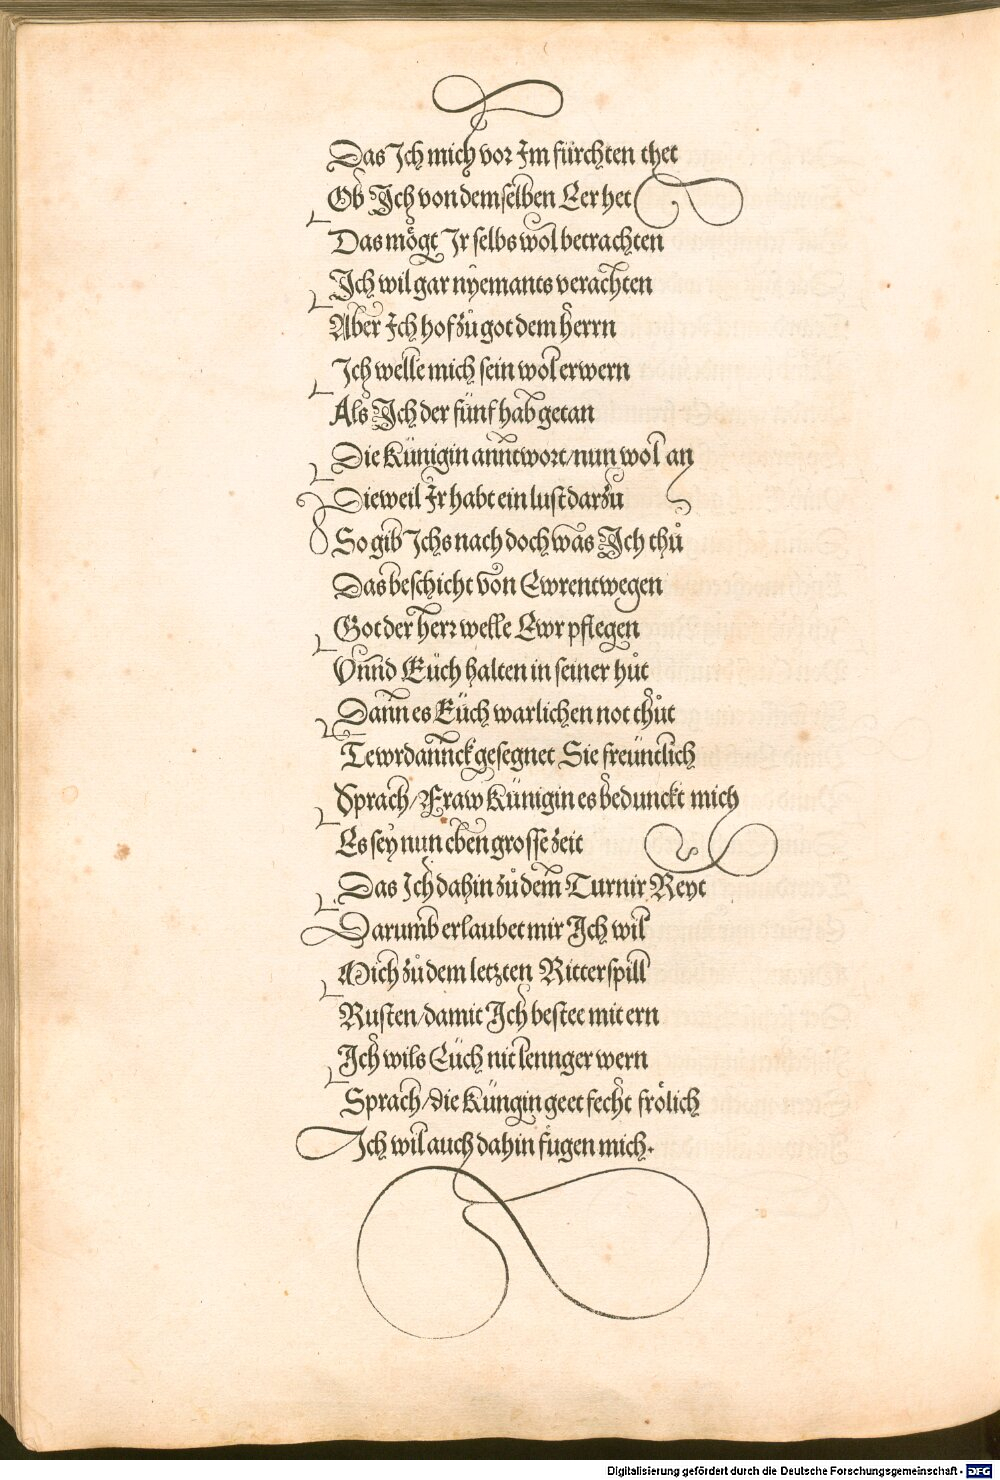 Das Ich mich vor Im fürchten thet
Ob Ich von demselben Eer het
Das mögt Ir selbs wol betrachten
Ich wil gar nyemants verachten
Aber Ich hof zů got dem herrn
Ich welle mich sein wol erwern
Als Ich der fünf hab getan
Die Künigin anntwort/nun wol an
Dieweil Ir habt ein lust darzů
So gib Ichs nach doch was Ich thů
Das beschicht von Ewrentwegen
Got der herr welle Ewr pflegen
Vnnd Eüch halten in seiner hůt
Dann es Eüch warlichen not thůt
Tewrdannck gesegnet Sie freüntlich
Sprach/Fraw Künigin es bedunckt mich
Es sey nun eben grosse zeit
Das Ich dahin zů dem Turnir Reyt
Darumb erlaubet mir Ich wil
Mich zů dem letzten Ritterspill
Rusten/damit Ich bestee mit ern
Ich wils Eüch nit lennger wern
Sprach/die Küngin geet fecht frölich
Ich wil auch dahin fügen mich.
Digitalisierung gefördert durch die Deutsche Forschungsgemeinschaft - DFG